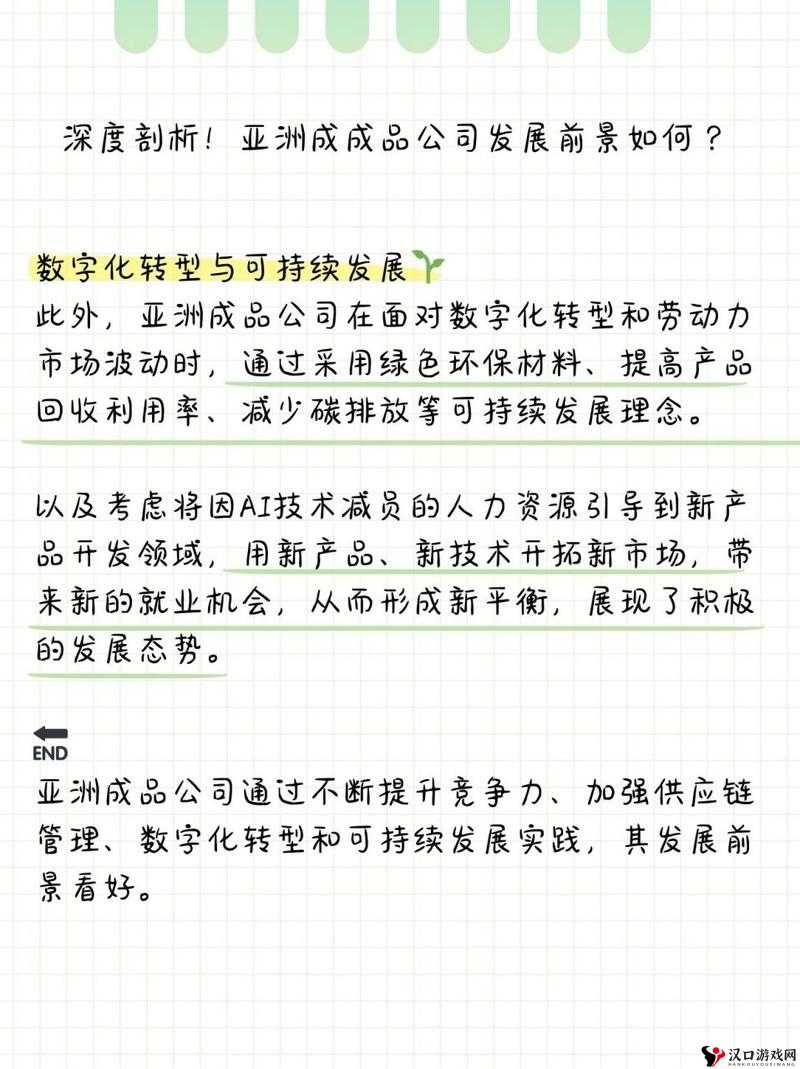 深度剖析！亚洲成成品公司发展前景如何？
数字化转型与可持续发展
此外，亚洲成品公司在面对数字化转型和劳动力
市场波动时，通过采用绿色环保材料、提高产品
回收利用率、减少碳排放等可持续发展理念。
以及考虑将因AI技术减员的人力资源引导到新产
品开发领域，用新产品、新技术开拓新市场，带
来新的就业机会，从而形成新平衡，展现了积极
的发展态势。
END
亚洲成品公司通过不断提升竞争力、加强供应链
管理、数字化转型和可持续发展实践，其发展前
景看好。
汉口游戏网
HANKOUYOUXIWANG